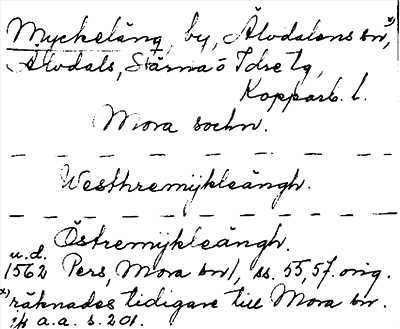 Myckeläng, by, Älvdalens sn x),
Älvdals, Särna o Idre tg,
Kopparb. l.
Mora sochn.
Westhremÿkleängh.
Östremÿkleängh.
u.d.
1562 Pers, Mora sn), ss. 55, 57. orig.
x) räknades tidigare till Mora sn.
jfr a.a. s. 201.